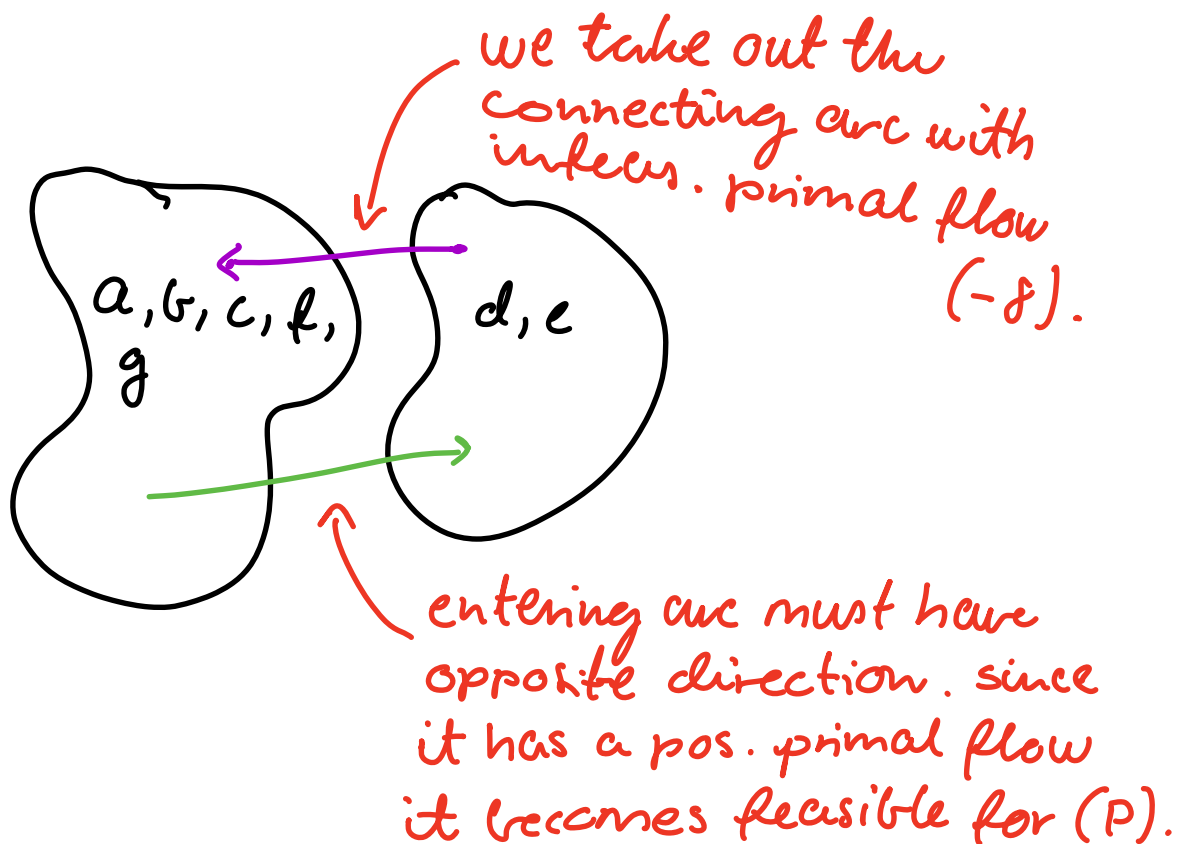 we take out the
connecting arc with
infeas. primal flow
(-8).
a, b, c, f,
g
d, e
entering arc must have
opposite direction. since
it has a pos. primal flow
it becomes feasible for (P).